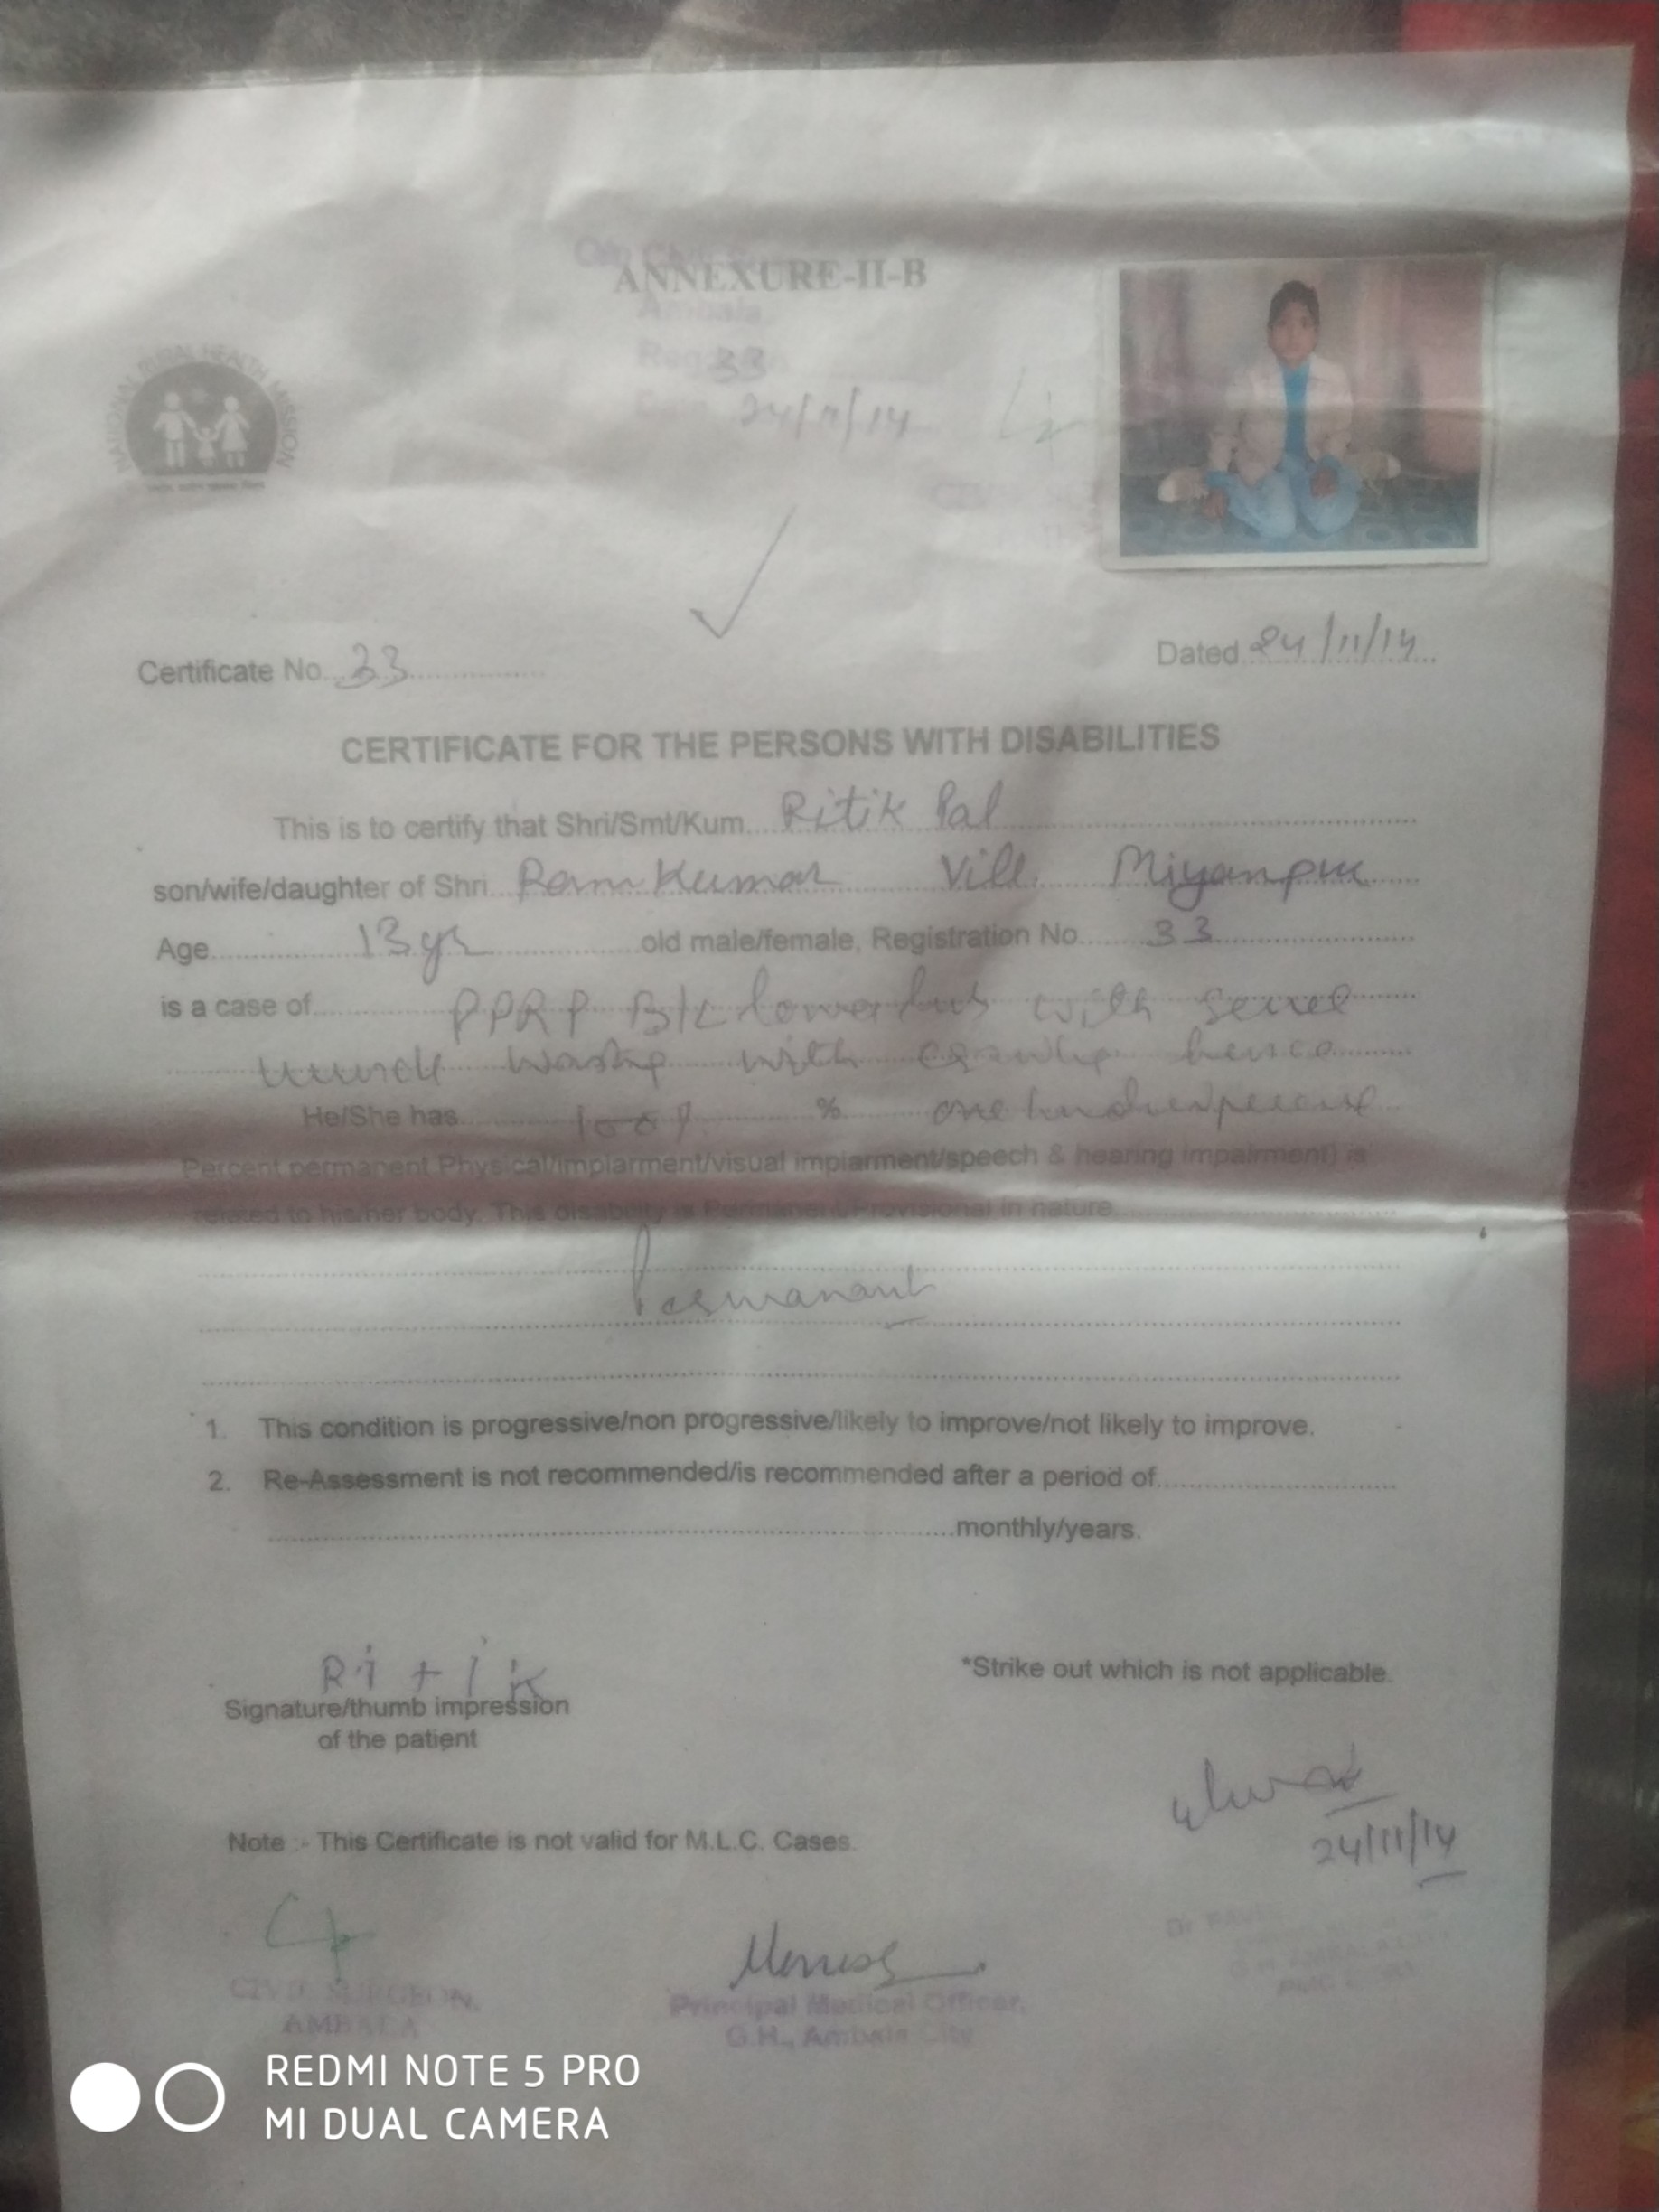 ANNEXURE-II-B
Ambala
33
24/11/14
NATIONAL RURAL HEALTH MISSION
Certificate No. 33
Dated 24/11/14
CERTIFICATE FOR THE PERSONS WITH DISABILITIES
This is to certify that Shri/Smt/Kum. Ritik Pal
son/wife/daughter of Shri. Ram Kumar Vill. Miyanpur
Age 13 yr old male/female, Registration No. 33
is a case of PPRP B/L lower with
with hence
He/She has 100% %
Percent permanent Physical/implarment/visual impiarment/speech & hearing impairment) is
related to his/her body. This disability is Permanent/Provisional in nature
Permanant
1. This condition is progressive/non progressive/likely to improve/not likely to improve.
2. Re-Assessment is not recommended/is recommended after a period of
monthly/years.
Ritik
Signature/thumb impression
of the patient
*Strike out which is not applicable.
24/11/14
Note :- This Certificate is not valid for M.L.C. Cases.
CIVIL SURGEON,
AMBALA
Principal Medical Officer,
G.H., Ambala City
REDMI NOTE 5 PRO
MI DUAL CAMERA